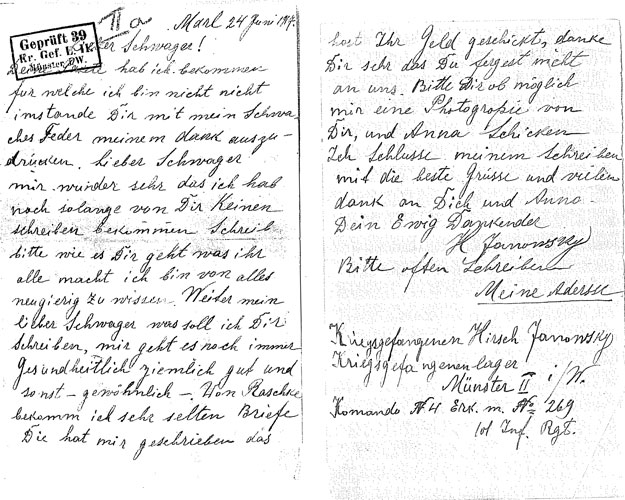 II a
Marl 24 Juni 1917.
Geprüft 39
Kr. Gef. L. II
Münster, W.
Lieber Schwager!
hab ich bekommen
fur welche ich bin nicht nicht
imstande Dir mit mein Schwa-
ches Feder meinem dank auszu-
drücken. Lieber Schwager
mir wunder sehr das ich hab
noch solange von Dir Keinen
schreiben bekommen Schreib
bitte wie es Dir geht was ihr
alle macht ich bin von alles
neugierig zu wissen. Weiter mein
lieber Schwager was soll ich Dir
schreiben, mir geht es noch immer
Gesundheitlich ziemlich gut und
sonst – gewöhnlich – Von Raschke
bekomm ich sehr selten Briefe
Die hat mir geschrieben das
hast Ihr Geld geschickt, danke
Dir sehr das Du fergest nicht
an uns. Bitte Dir ob möglich
mir eine Photogropie von
Dir, und Anna Schicken
Ich Schlusse meinem Schreiben
mit die beste Grüsse und vielen
dank an Dich und Anna.
Dein Ewig Dankender
H Janowsky
Bitte often Schreiben
Meine Adersse
Kriegsgefangenen Hirsch Janowsky
Kriegsgefangenenlager
Münster II i/W.
Komando N 4 Erk. m. No 269
Inf. Rgt.